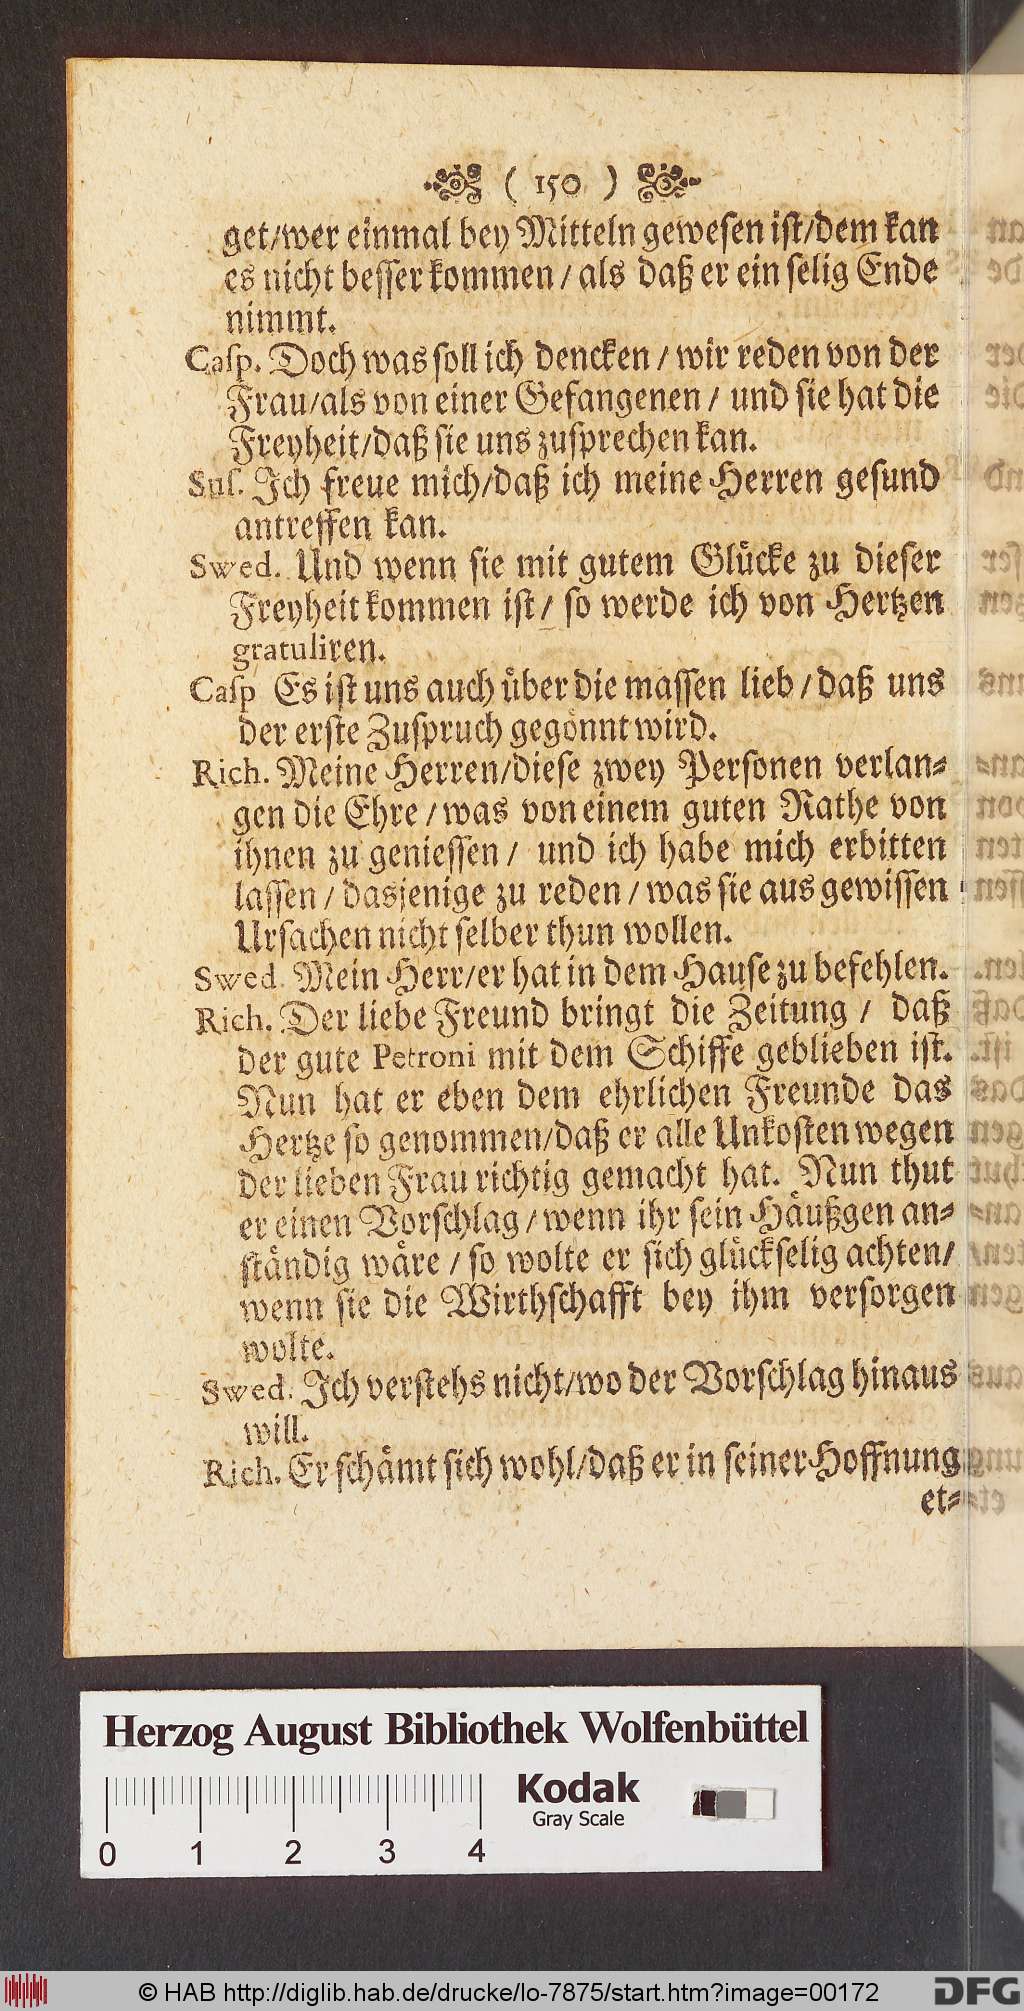 ( 150 )
get/wer einmal bey Mitteln gewesen ist/dem kan
es nicht besser kommen / als daß er ein selig Ende
nimmt.
Casp. Doch was soll ich dencken / wir reden von der
Frau/als von einer Gefangenen / und sie hat die
Freyheit/daß sie uns zusprechen kan.
Sus. Ich freue mich/daß ich meine Herren gesund
antreffen kan.
Swed. Und wenn sie mit gutem Glücke zu dieser
Freyheit kommen ist / so werde ich von Hertzen
gratuliren.
Casp Es ist uns auch über die massen lieb / daß uns
der erste Zuspruch gegönnt wird.
Rich. Meine Herren/diese zwey Personen verlan-
gen die Ehre / was von einem guten Rathe von
ihnen zu geniessen / und ich habe mich erbitten
lassen / dasjenige zu reden / was sie aus gewissen
Ursachen nicht selber thun wollen.
Swed. Mein Herr/er hat in dem Hause zu befehlen.
Rich. Der liebe Freund bringt die Zeitung / daß
der gute Petroni mit dem Schiffe geblieben ist.
Nun hat er eben dem ehrlichen Freunde das
Hertze so genommen/daß er alle Unkosten wegen
der lieben Frau richtig gemacht hat. Nun thut
er einen Vorschlag / wenn ihr sein Häußgen an-
ständig wäre / so wolte er sich glückselig achten/
wenn sie die Wirthschafft bey ihm versorgen
wolte.
Swed. Ich verstehs nicht/wo der Vorschlag hinaus
will.
Rich. Er schämt sich wohl/daß er in seiner Hoffnung
et-
Herzog August Bibliothek Wolfenbüttel
Kodak
Gray Scale
0 1 2 3 4
© HAB http://diglib.hab.de/drucke/lo-7875/start.htm?image=00172
DFG